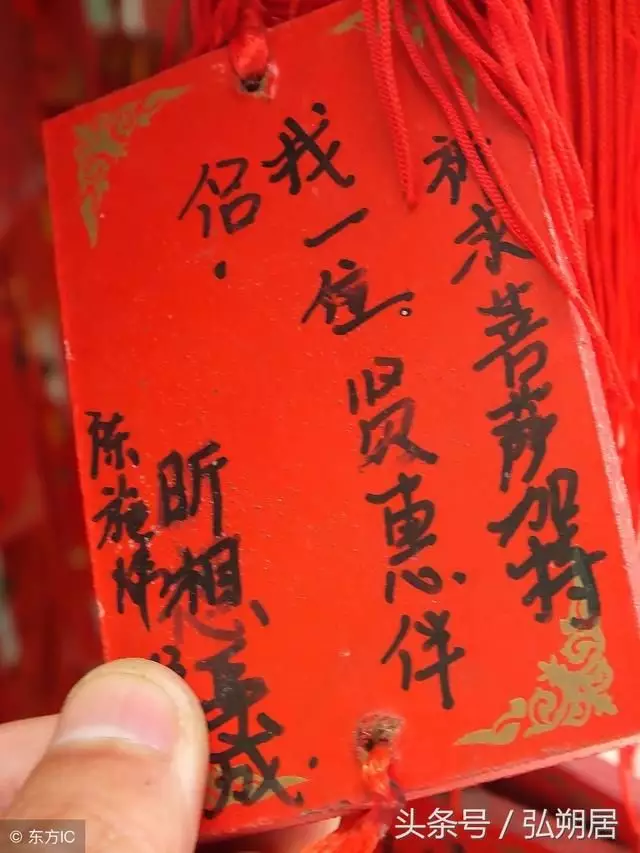 祈求菩萨加持
我一位.贤惠伴
侣.
昕想事成.
陈施
© 东方IC
头条号 / 弘朔居